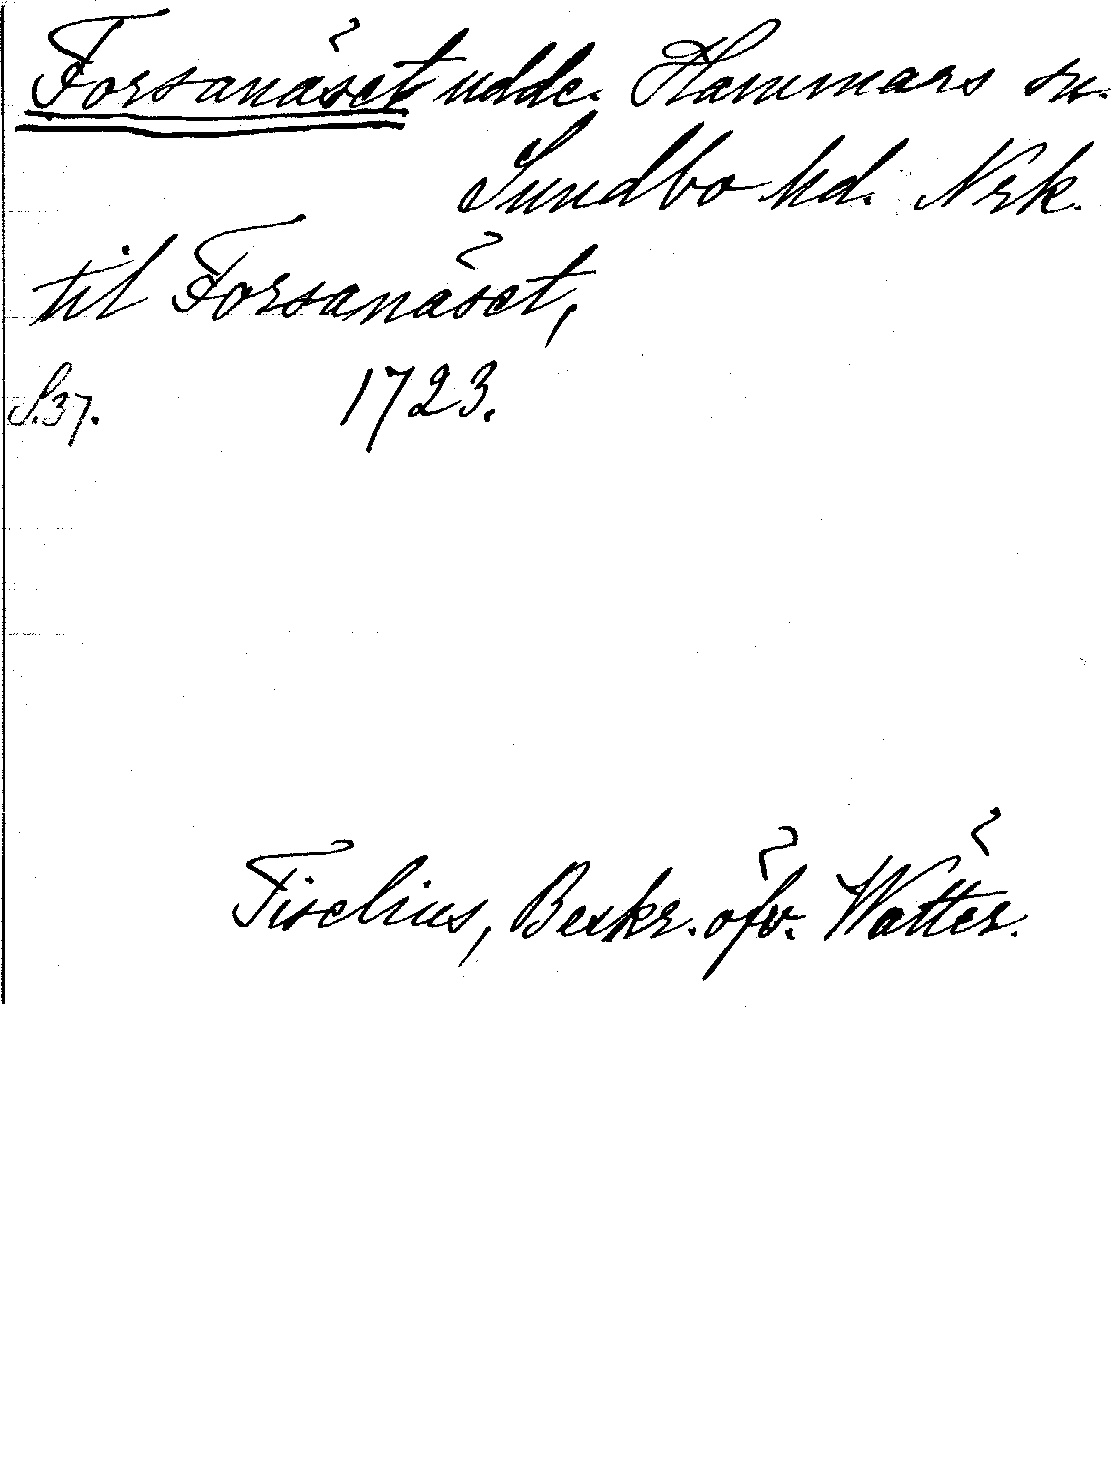 Forsanäset udde. Hammars sn.
Sundbo hd. Nrk.
til Forsanäset,
S.37. 1723.
Tiselius, Beskr. öfv. Wätter.